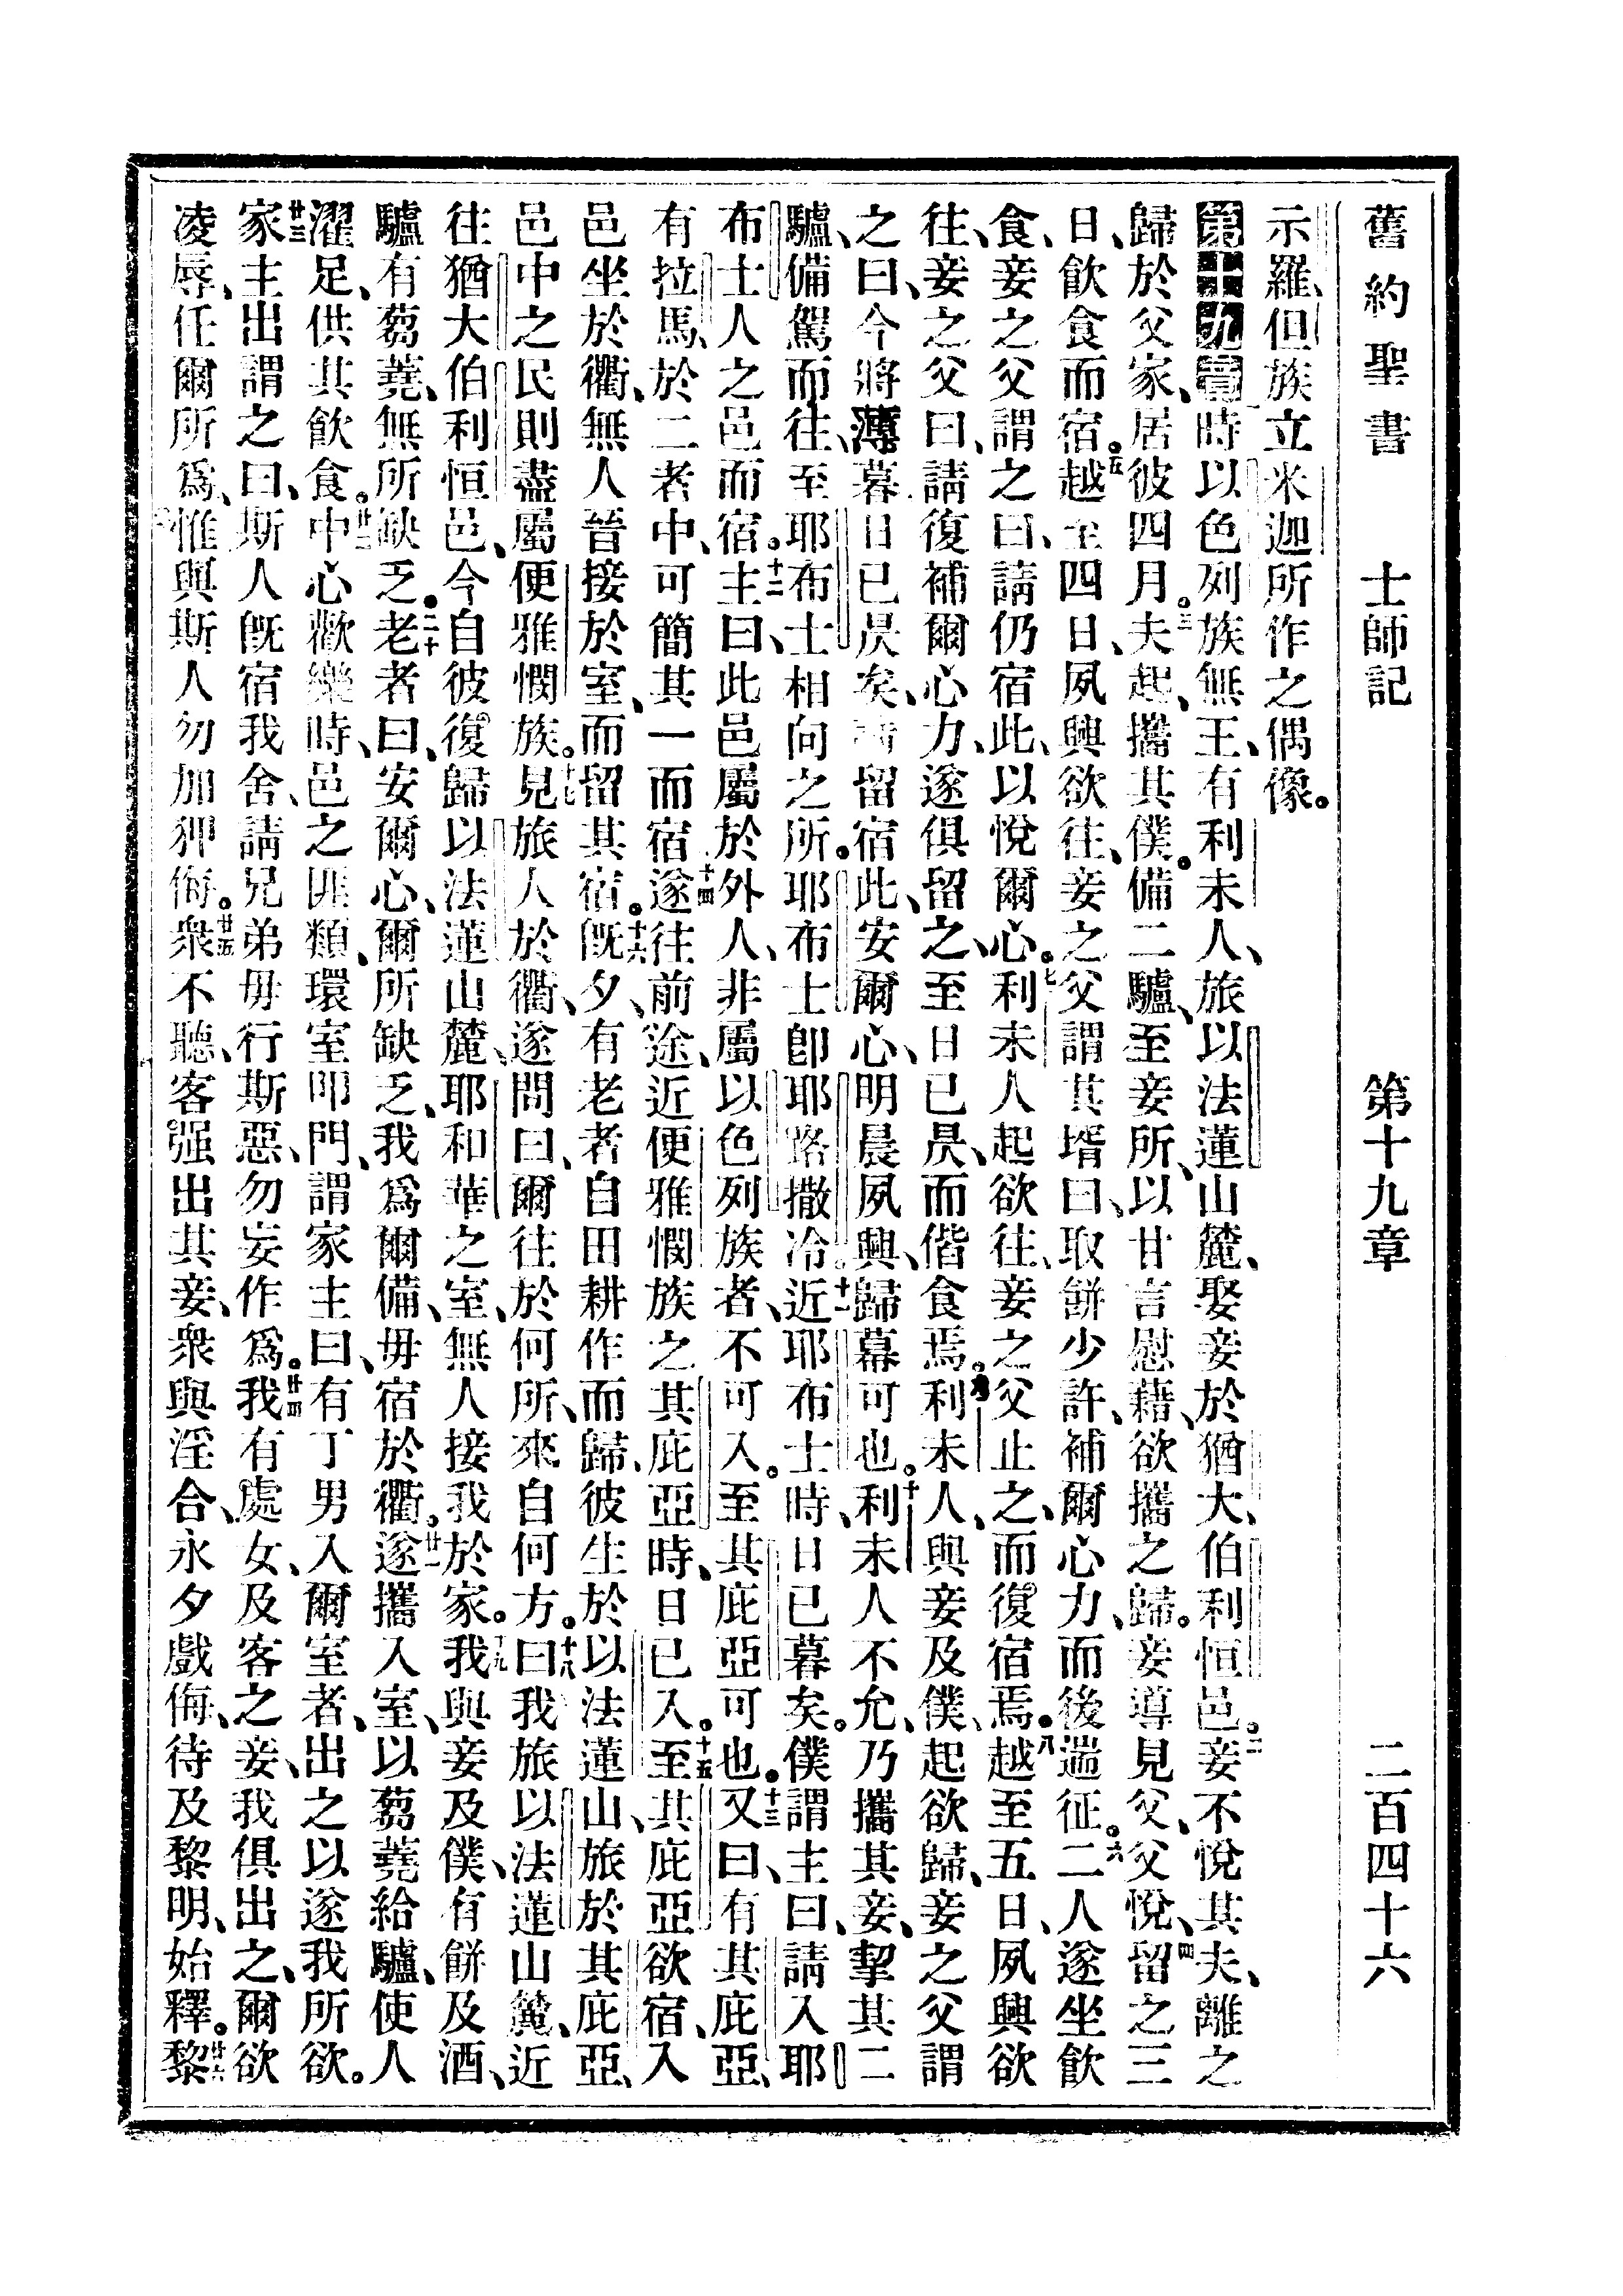 舊約聖書　士師記　第十九章　二百四十六
示羅、但族立米迦所作之偶像。
第十九章　一時以色列族無王、有利未人、旅以法蓮山麓、娶妾於猶大伯利恒邑。二妾不悅其夫、離之
歸於父家、居彼四月。三夫起、攜其僕。備二驢、至妾所、以甘言慰藉、欲攜之歸。妾導見父、父悅、四留之三
日、飲食而宿。五越至四日、夙興欲往、妾之父謂其壻曰、取餅少許、補爾心力、而後遄征。六二人遂坐飲
食、妾之父謂之曰、請仍宿此、以悅爾心。七利未人起欲往、妾之父止之、而復宿焉。八越至五日、夙興欲
往、妾之父曰、請復補爾心力、遂俱留之、至日已昃、而偕食焉。九利未人、與妾及僕、起欲歸、妾之父謂
之曰、今將薄暮、日已昃矣、請留宿此、安爾心、明晨夙興、歸幕可也。十利未人不允、乃攜其妾、挈其二
驢、備駕而往、至耶布士相向之所。耶布士卽耶路撒冷。十一近耶布士時、日已暮矣。僕謂主曰、請入耶
布士人之邑而宿。十二主曰、此邑屬於外人、非屬以色列族者、不可入。至其庇亞可也。十三又曰、有其庇亞、
有拉馬、於二者中、可簡其一而宿。十四遂往前途、近便雅憫族之其庇亞時、日已入。十五至其庇亞欲宿、入
邑坐於衢、無人晉接於室、而留其宿。十六旣夕、有老者自田耕作而歸、彼生於以法蓮山、旅於其庇亞、
邑中之民則盡屬便雅憫族。十七見旅人於衢、遂問曰、爾往於何所、來自何方。十八曰、我旅以法蓮山麓、近
往猶大伯利恒邑、今自彼復歸以法蓮山麓、耶和華之室、無人接我於家。十九我與妾及僕、有餅及酒、
驢有芻蕘、無所缺乏。二十老者曰、安爾心、爾所缺乏、我爲爾備、毋宿於衢。廿一遂攜入室、以芻蕘給驢、使人
濯足、供其飮食。廿二中心歡樂時、邑之匪類、環室叩門、謂家主曰、有丁男入爾室者、出之以遂我所欲。
廿三家主出謂之曰、斯人旣宿我舍、請兄弟毋行斯惡、勿妄作爲。廿四我有處女、及客之妾、我俱出之、爾欲
凌辱、任爾所爲、惟與斯人勿加狎侮。廿五衆不聽、客强出其妾、衆與淫合、永夕戲侮、待及黎明、始釋。廿六黎